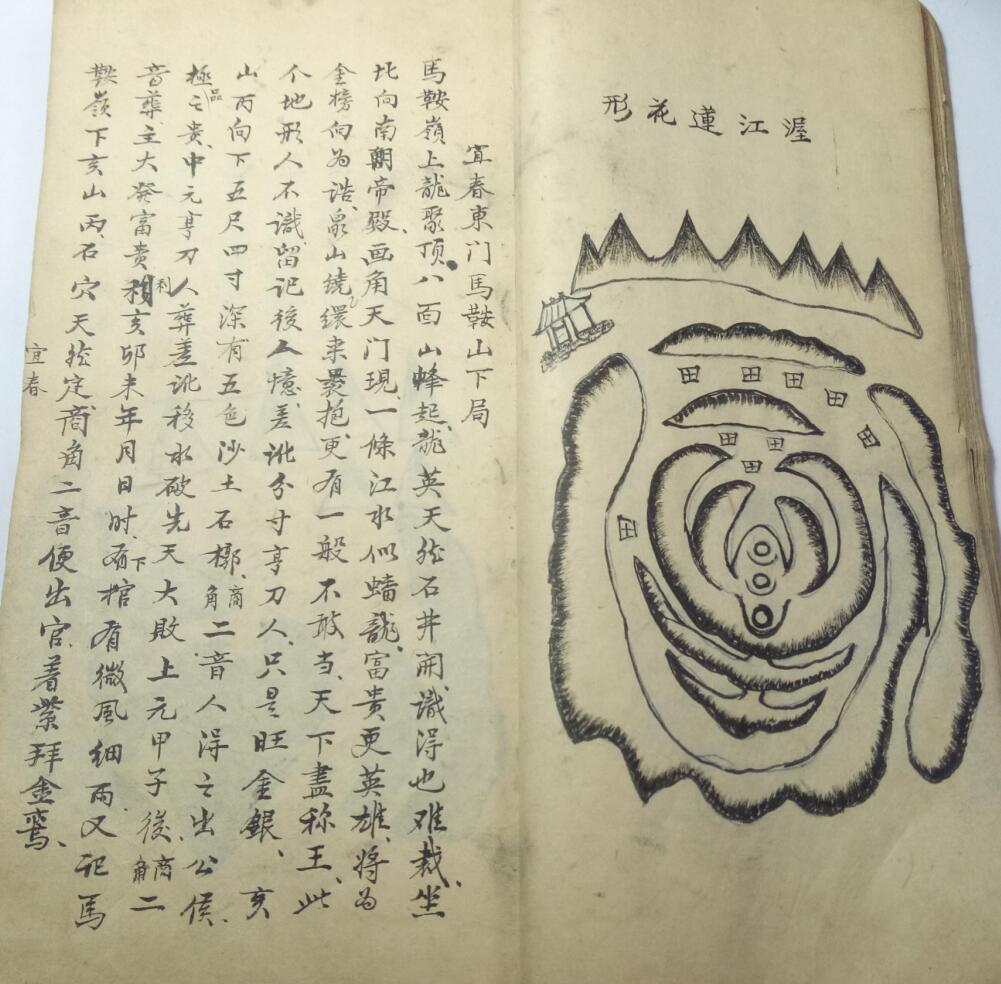 渥江蓮花形
田
田
田
田
田
田
田
田
田
宜春東门馬鞍山下局
馬鞍嶺上龍聚頂八面山蜂起龍英天然石井開識得也难裁坐
北向南朝帝殿画角天门現一條江水似蟠龍富贵更英雄将为
金榜向为诰泉山繞缳来裹抱更有一般不敢当天下盡称王此
个地形人不識留记後人憶差讹分寸亨刀人只是旺金銀亥
山丙向下五尺四寸深有五色沙土石槨商角二音人得之出公侯
極品之贵中元亨刀人葬差讹移水破先天大敗上元甲子後商角二
音葬主大発富贵利亥卯未年月日时下有棺有微風细雨又记馬
鞍嶺下亥山丙石穴天然定商角二音便出官着紫拜金鸾
宜春